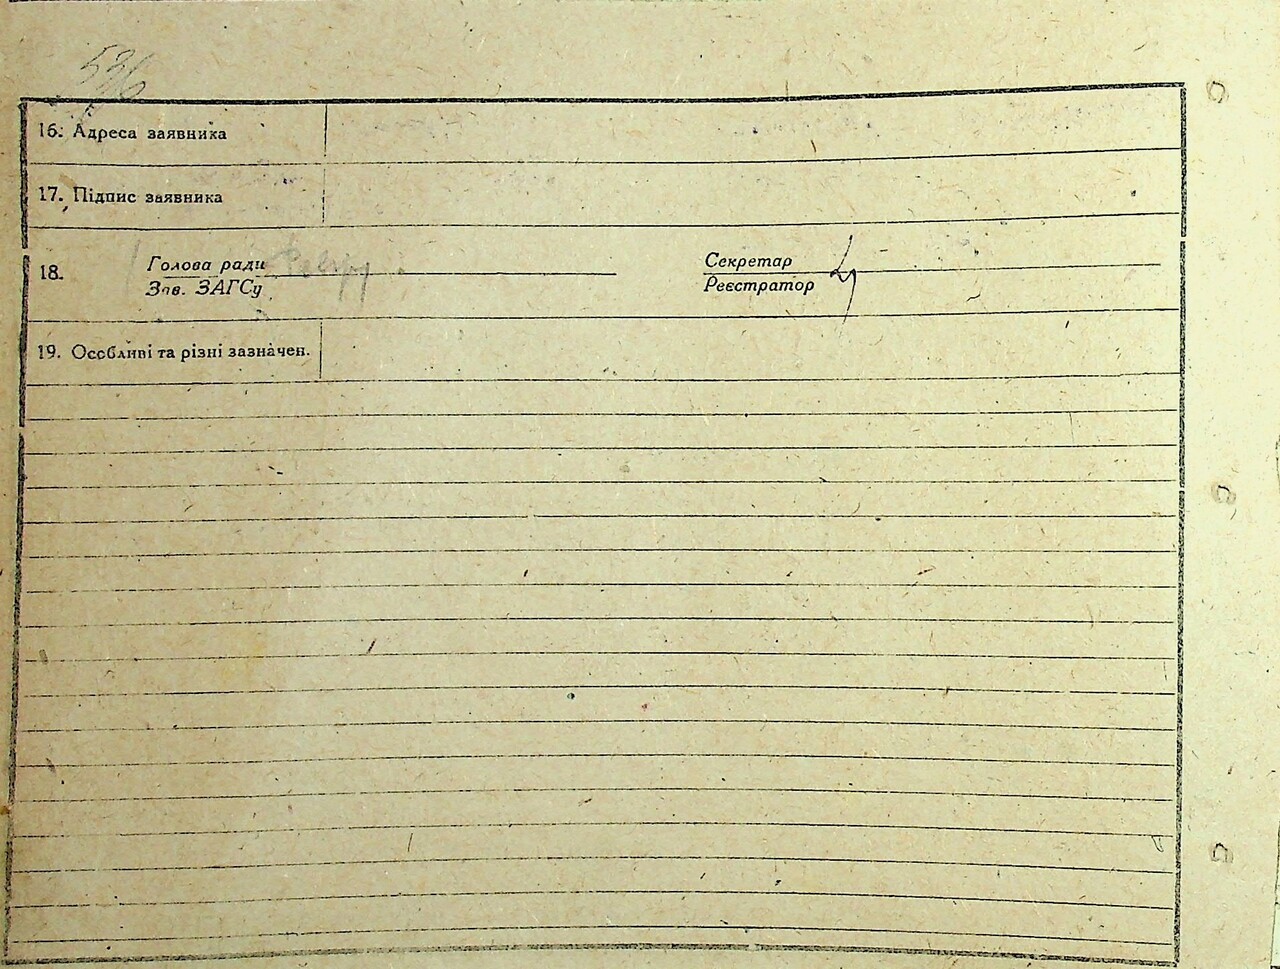 536
16. Адреса заявника
17. Підпис заявника
18. Голова ради
Зав. ЗАГСу
Секретар
Реєстратор
19. Особливі та різні зазначен.